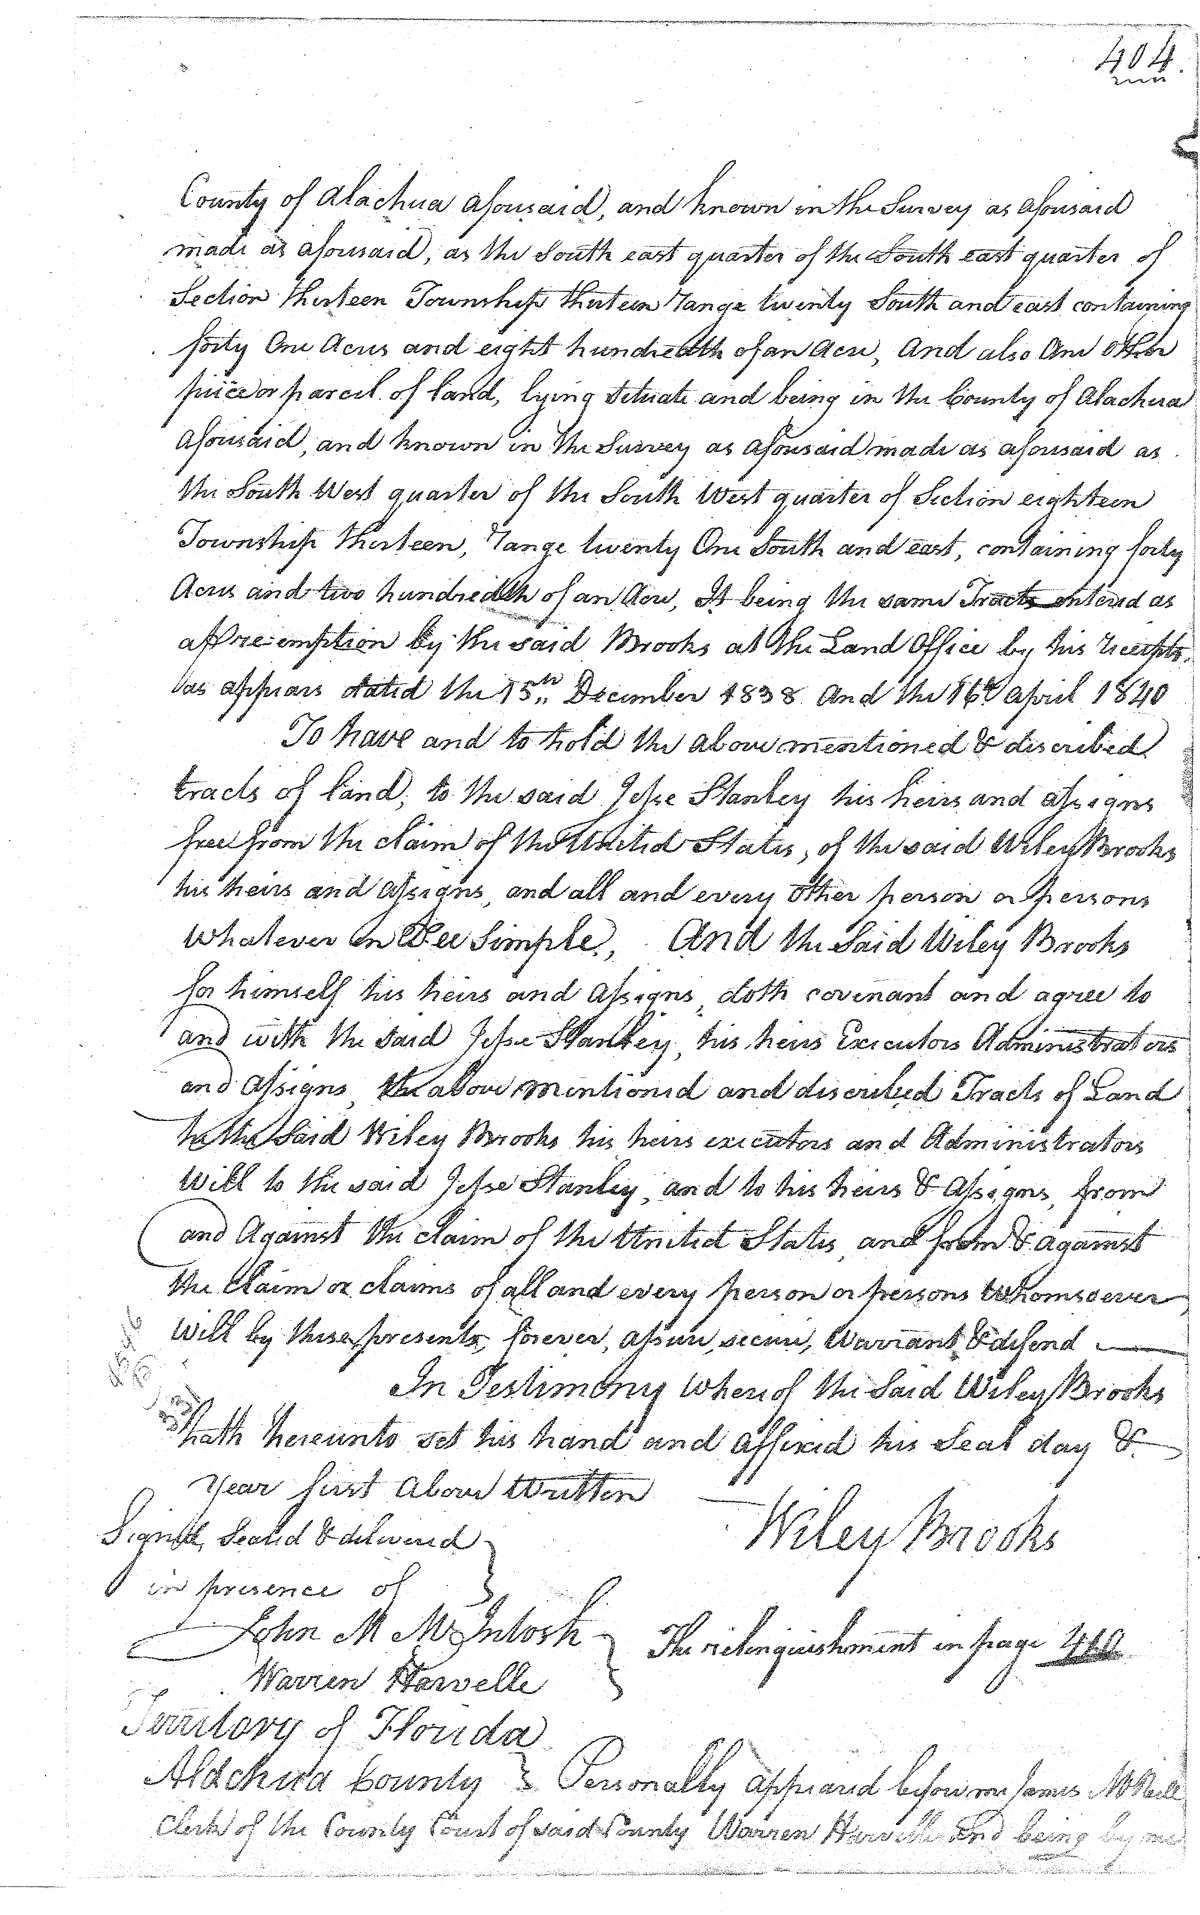 404.
County of Alachua aforesaid, and known in the Survey as aforesaid
made as aforesaid, as the South east quarter of the South east quarter of
Section thirteen Township thirteen range twenty South and east containing
forty One Acres and eight hundredth of an Acre, And also One other
piece or parcel of land, lying Situate and being in the County of Alachua
aforesaid, and known in the Survey as aforesaid made as aforesaid as
the South West quarter of the South West quarter of Section eighteen
Township thirteen, range twenty One South and east, containing forty
Acres and two hundredth of an Acre, It being the same Tracts entered as
a Pre-emption by the said Brooks at the Land Office by his receipts
as appears dated the 15th December 1838 And the 16th April 1840
To have and to hold the above mentioned & discribed
tracts of land, to the said Jesse Stanley his heirs and assigns
free from the claim of the United States, of the said Wiley Brooks
his heirs and assigns, and all and every other person or persons
Whatever in Fee Simple, And the Said Wiley Brooks
for himself his heirs and assigns, doth covenant and agree to
and with the said Jesse Stanley, his heirs Executors Administrators
and assigns, the above mentioned and discribed Tracts of Land
he the Said Wiley Brooks his heirs executors and Administrators
Will to the said Jesse Stanley, and to his heirs & Assigns, from
and Against the claim of the United States, and from & against
the Claim or claims of all and every person or persons Whomsoever
Will by these presents, forever, assure, secure, Warrant & defend
In Testimony Whereof the Said Wiley Brooks
hath hereunto set his hand and affixed his Seal day &
Year first Above Written
Wiley Brooks
Signed, Sealed & delivered
in presence of
John M McIntosh
The relinquishment in page 410
Warren Harvelle
Territory of Florida
Alachua County } Personally appeared before me James McNeill
Clerk of the County Court of said County Warren Harvelle And being by me